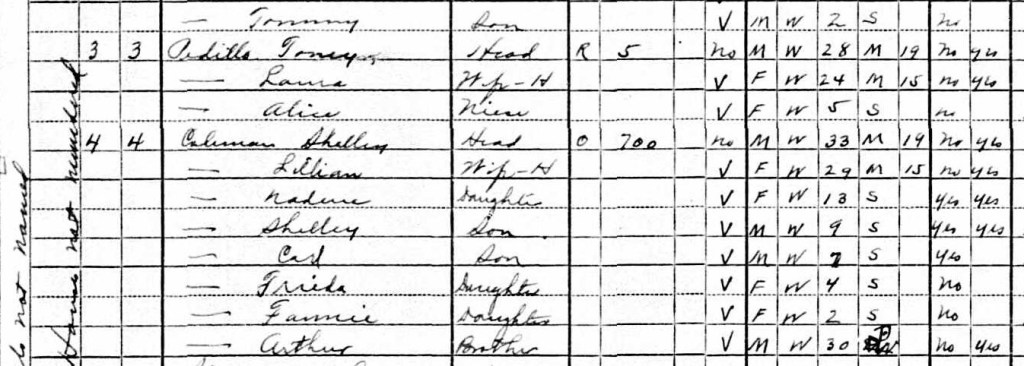 — Tommy Son V M W 2 S no
3 3 Padillo Toney Head R 5 no M W 28 M 19 no yes
— Laura Wife-H V F W 24 M 15 no yes
— Alice Niese V F W 5 S no
4 4 Coleman Shelley Head O 700 no M W 33 M 19 no yes
— Lillian Wife-H V F W 29 M 15 no yes
— Nadine Daughter V F W 13 S yes yes
— Shelley Son V M W 9 S yes yes
— Carl Son V M W 7 S yes
— Frieda Daughter V F W 4 S no
— Fannie Daughter V F W 2 S no
— Arthur Brother V M W 30 no yes
not named
Homes not numbered